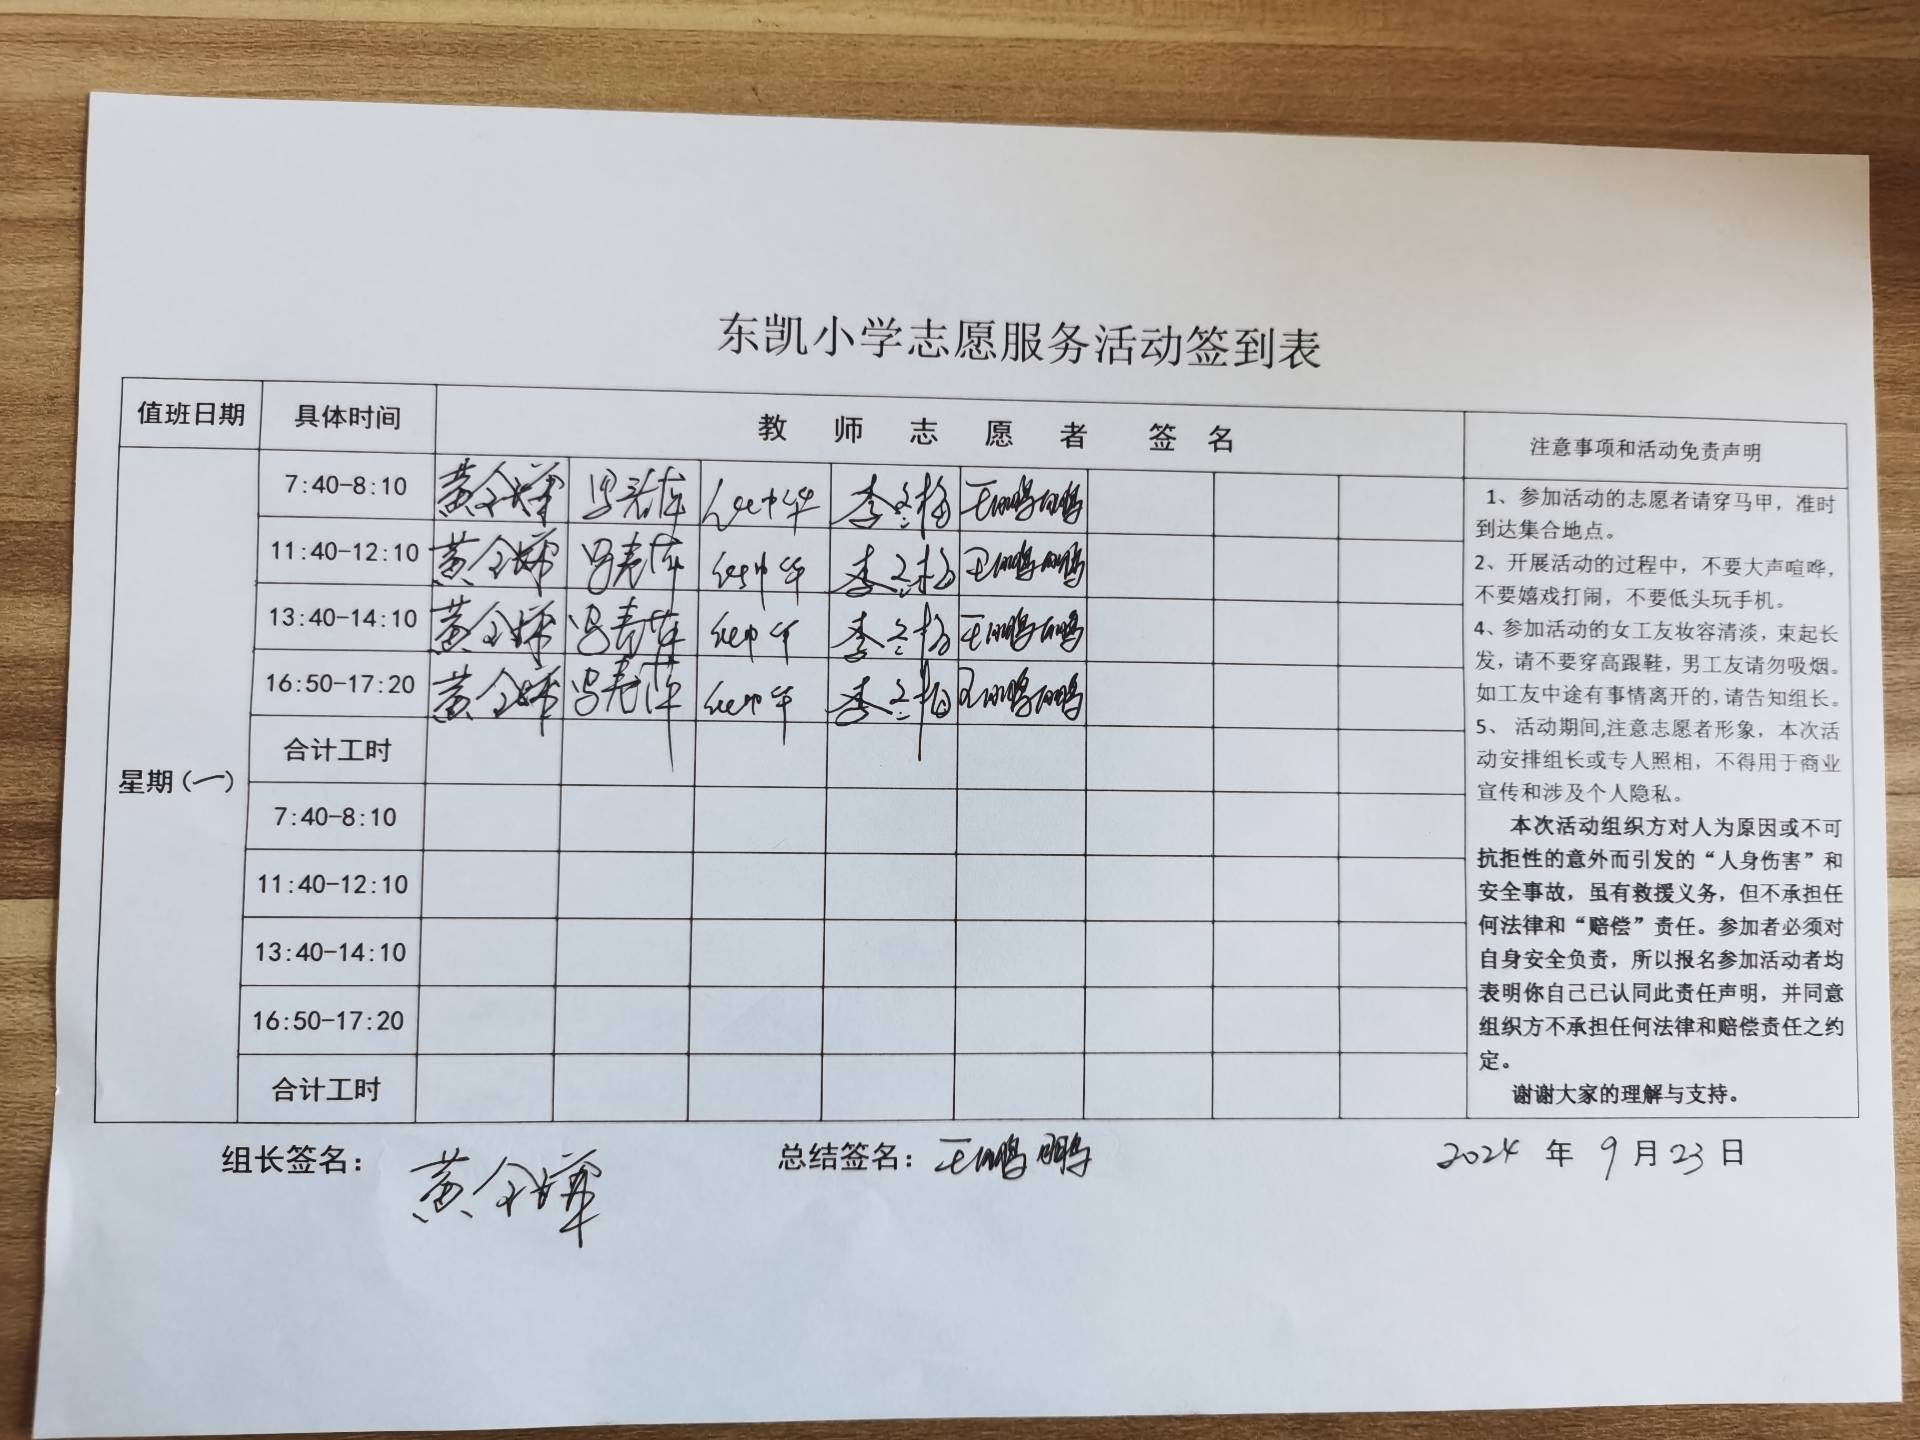 东凯小学志愿服务活动签到表
值班日期 具体时间 教师志愿者签名 注意事项和活动免责声明
星期(一)
7:40-8:10 李冬梅 王鹏鹏
11:40-12:10 李冬梅 王鹏鹏
13:40-14:10 李冬梅 王鹏鹏
16:50-17:20 李冬梅 王鹏鹏
合计工时
7:40-8:10
11:40-12:10
13:40-14:10
16:50-17:20
合计工时
1、参加活动的志愿者请穿马甲，准时
到达集合地点。
2、开展活动的过程中，不要大声喧哗，
不要嬉戏打闹，不要低头玩手机。
4、参加活动的女工友妆容清淡，束起长
发，请不要穿高跟鞋，男工友请勿吸烟。
如工友中途有事情离开的，请告知组长。
5、 活动期间,注意志愿者形象，本次活
动安排组长或专人照相，不得用于商业
宣传和涉及个人隐私。
本次活动组织方对人为原因或不可
抗拒性的意外而引发的“人身伤害”和
安全事故，虽有救援义务，但不承担任
何法律和“赔偿”责任。参加者必须对
自身安全负责，所以报名参加活动者均
表明你自己已认同此责任声明，并同意
组织方不承担任何法律和赔偿责任之约
定。
谢谢大家的理解与支持。
组长签名： 总结签名：王鹏鹏 2024 年 9 月 23 日